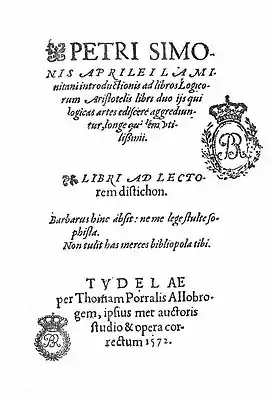 PETRI SIMO-
NIS APRILEI LAMI-
nitani introductionis ad libros Logico-
rum Aristotelis libri duo ijs qui
logicas artes ediscere aggrediun-
tur, longe
lissimi.
LIBRI AD LECTO-
rem distichon.
Barbarus hinc absit: ne me lege stulte so-
phista.
Non tulit has merces bibliopola tibi.
TVDELAE
per Thomam Porralis Allobro-
gem, ipsius met auctoris
studio & opera cor-
rectum 1572.
BR
BR